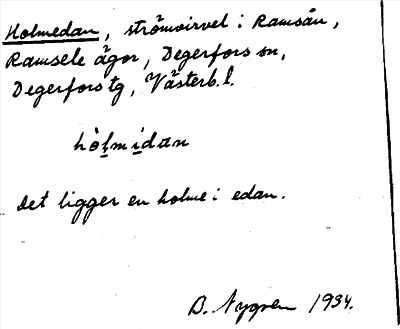 Holmedan, strömvirvel i Ramsån,
Ramsele ägor, Degerfors sn,
Degerfors tg, Västerb. l.
hòlmidan
Det ligger en holme i edan.
B. Nygren 1934.